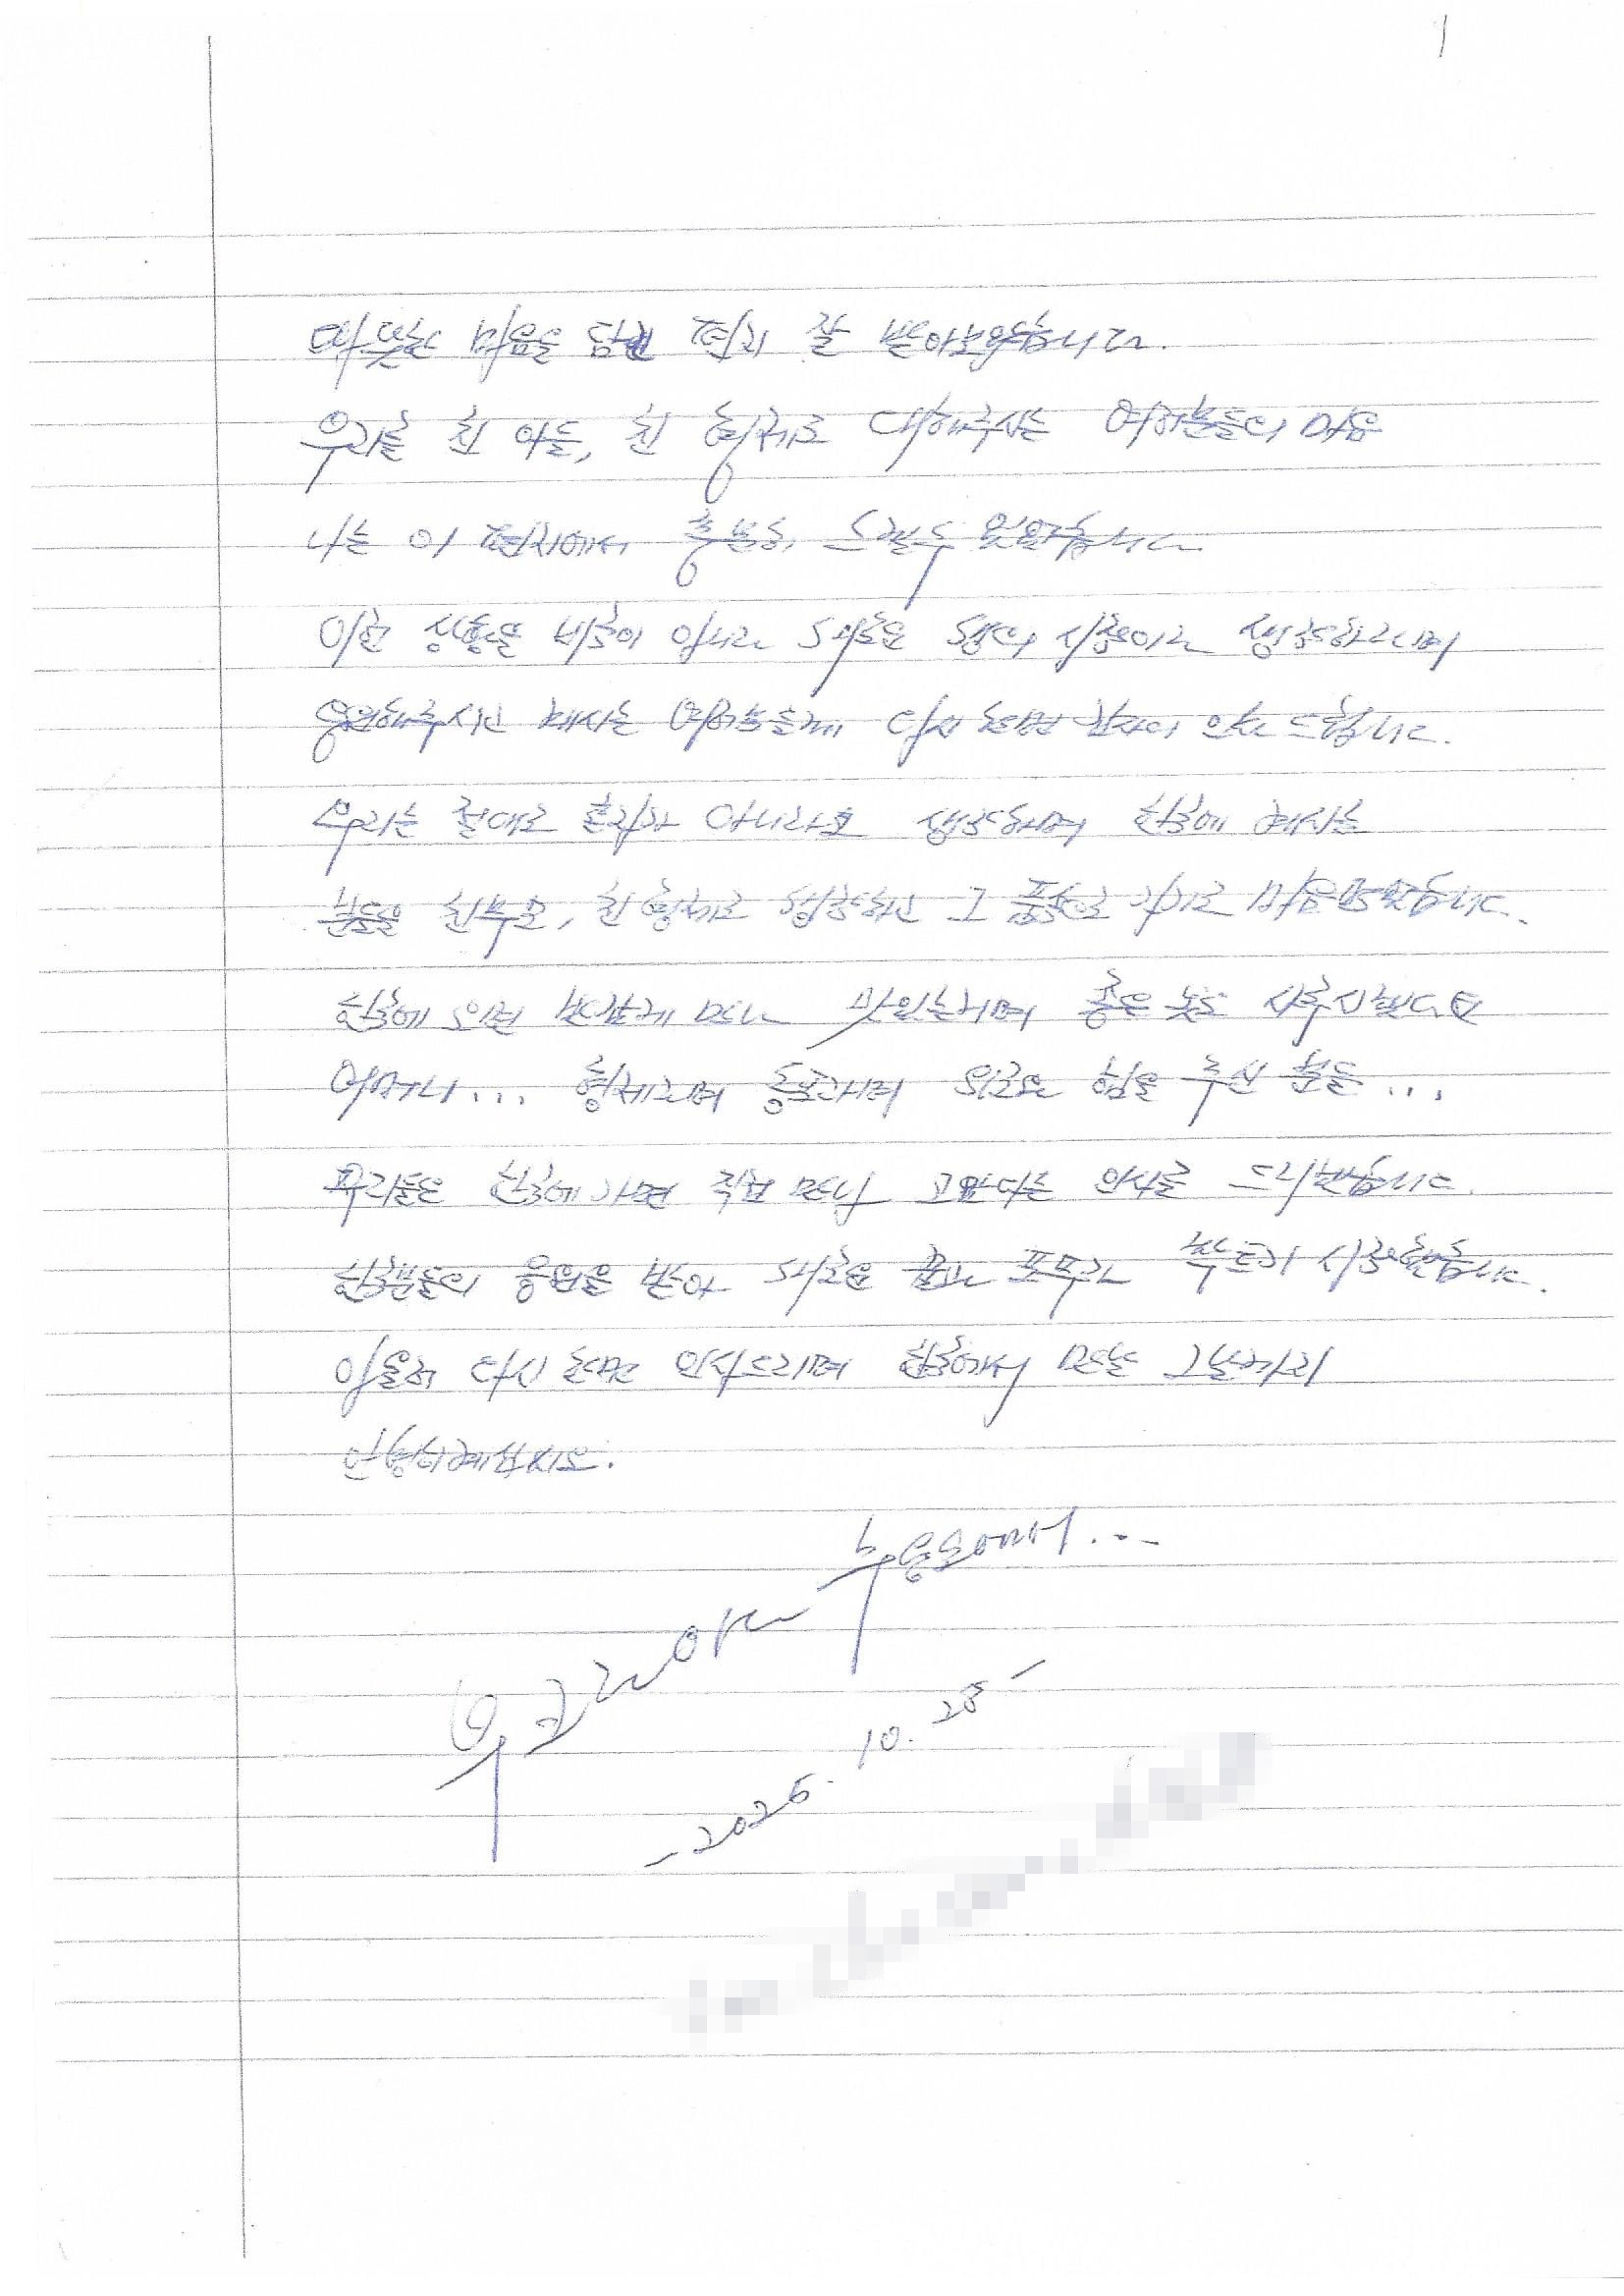 1
따뜻한 마음을 담은 편지 잘 받아보았습니다.
우리를 친 아들, 친 형제로 대해주시는 여러분들의 마음
나는 이 편지에서 충분히 느낄수 있었습니다.
이런 상황은 비극이 아니라 새로운 삶의 시작이라 생각하라며
응원해주시고 계시는 여러분들께 다시 한번 감사의 인사 드립니다.
우리는 절대로 혼자가 아니라고 생각하며 한국에 계시는
분들을 친부모, 친 형제로 생각하고 그 품속으로 가기로 마음먹었습니다.
한국에 오면 반갑게 만나 맛있는거며 좋은 옷도 사주시겠다던
어머니... 형제라며 동포라며 위로와 힘을 주신 분들...
우리들은 한국에 가면 직접 만나 고맙다는 인사를 드리겠습니다.
한국분들의 응원을 받아 새로운 꿈과 포부가 싹트기 시작했습니다.
이들께 다시 한번 인사드리며 한국에서 만날 그날까지
안녕히계십시오.
수용소에서...
우크라이나
-2025. 10. 28-